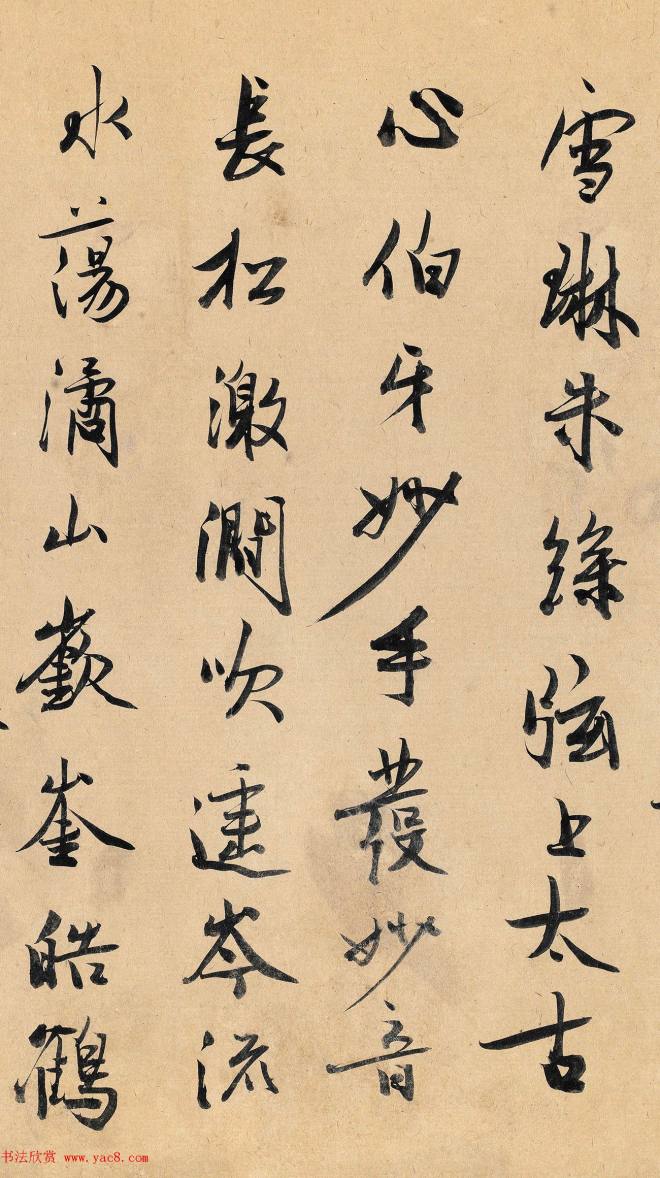 雪琳朱絲弦上太古
心伯牙妙手發妙音
長松激澗吹遠岑流
水蕩潏山嶔崟皓鶴
书法欣赏 www.yac8.com